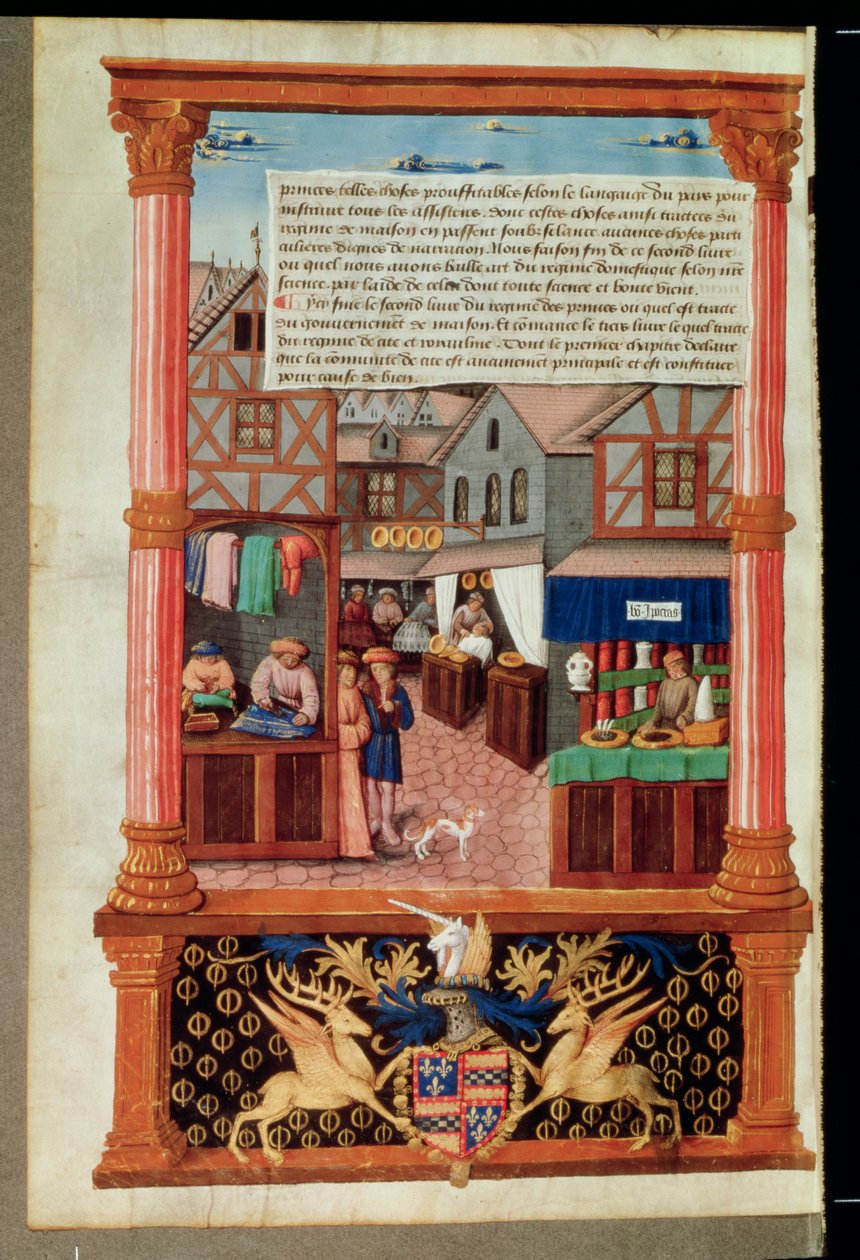 princes telles choses prouffitables selon le langaige du pays pour
instruire tous les assistens. donc cestes choses ainsi tractees du
regime de maison en passent soubz silance aucunes choses parti
culieres dignes de narracion. Nous faison fin de ce second livre
ou quel nous avons baille art du regime domestique selon nre
science. par laide de celui dont toute science et bonte vient.
Cy fine le second livre du regime des princes ou quel est tracte
du gouvernement de maison. Et comance le tiers livre le quel tracte
du regime de cite et royaulme. Dont le premier chapitre declaire
que la comunite de cite est aucunement principale et est constituee
pour cause de bien.
bō Ipocras